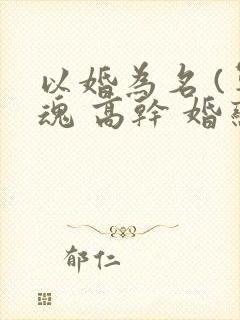 以婚為名(
魂 高幹 婚
郁仁